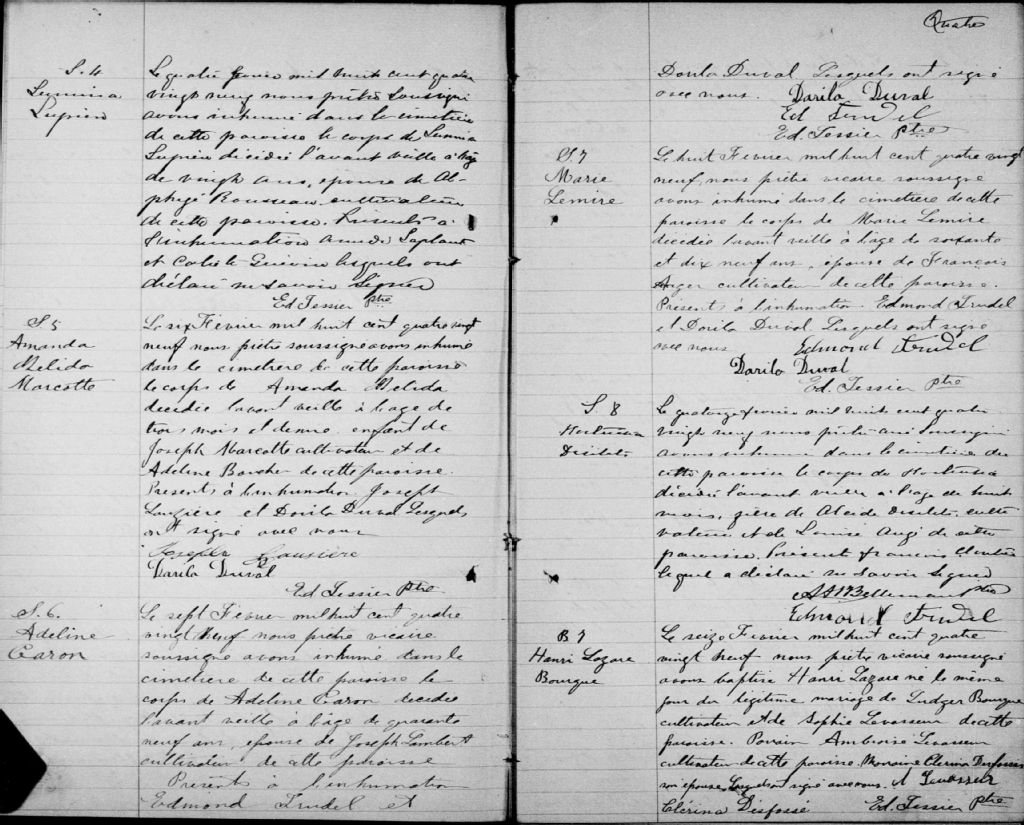 S. 4
Lumina
Lupien
Le quatre fevrier mil huit cent quatre
vingt neuf nous prêtre soussigné
avons inhumé dans le cimetière
de cette paroisse le corps de Lumina
Lupien décédée l'avant veille à l'âge
de vingt ans, épouse de Al-
phège Rousseau, cultivateur
de cette paroisse. Présents à
l'inhumation
et lesquels ont
déclaré ne savoir signer
Ed Tessier Ptre
S 5
Amanda
Melida
Marcotte
Le six Fevrier mil huit cent quatre vingt
neuf nous prêtre soussigné avons inhumé
dans le cimetiere de cette paroisse
le corps de Amanda Melida
decedée l'avant veille à l'age de
trois mois et demie enfant de
Joseph Marcotte cultivateur et de
Adeline de cette paroisse.
Presents à l'inhumation Joseph
Lauziere et Dorila Duval Lesquels
ont signé avec nous
Joseph Lausière
Darila Duval
Ed Tessier Ptre
S. 6.
Adeline
Caron
Le sept Fevrier mil huit cent quatre
vingt Neuf nous prêtre vicaire
soussigné avons inhumé dans le
cimetiere de cette paroisse le
corps de Adeline Caron decedée
l'avant veille à l'âge de quarante
neuf ans, epouse de Joseph Lambert
cultivateur de cette paroisse
Présent à l'inhumation
Edmond Trudel et
Quatre
Dorila Duval Lesquels ont signé
avec nous. Darila Duval
Ed Trudel
Ed. Tessier Ptre
S. 7
Marie
Lemire
Le huit Fevrier mil huit cent quatre vingt
neuf, nous prêtre vicaire soussigné
avons inhumé dans le cimetiere de cette
paroisse le corps de Marie Lemire
decedée l'avant veille à l'age de soixante
et dix neuf ans, épouse de François
Auger cultivateur de cette paroisse.
Présents à l'inhumation Edmond Trudel
et Dorila Duval Lesquels ont signé
avec nous Edmond Trudel
Darila Duval
Ed. Tessier Ptre
S. 8
Hortensia
Désilets
Le quatorze fevrier mil huit cent quatre
vingt neuf nous prêtre curé soussigné
avons inhumé dans le cimetière de
cette paroisse le corps de Hortensia
décédée l'avant veille a l'age de huit
mois, de Alcide Desilets culti
vateur et de Louise Augé de cette
paroisse. Présent François
lequel a déclaré ne savoir signer
ptre
Edmond Trudel
B 7
Henri Lazare
Bourque
Le seize Fevrier mil huit cent quatre
vingt neuf nous prêtre vicaire soussigné
avons baptisé Henri Lazare né le même
jour du légitime mariage de Ludger Bourque
cultivateur et de Sophie Levasseur de cette
paroisse. Parrain Ambroise Levasseur
cultivateur de cette paroisse. Marraine Clerina Desfossés
son épouse, Lesquels ont signé avec nous. A Levasseur
Clérina Désfossé Ed. Tessier Ptre